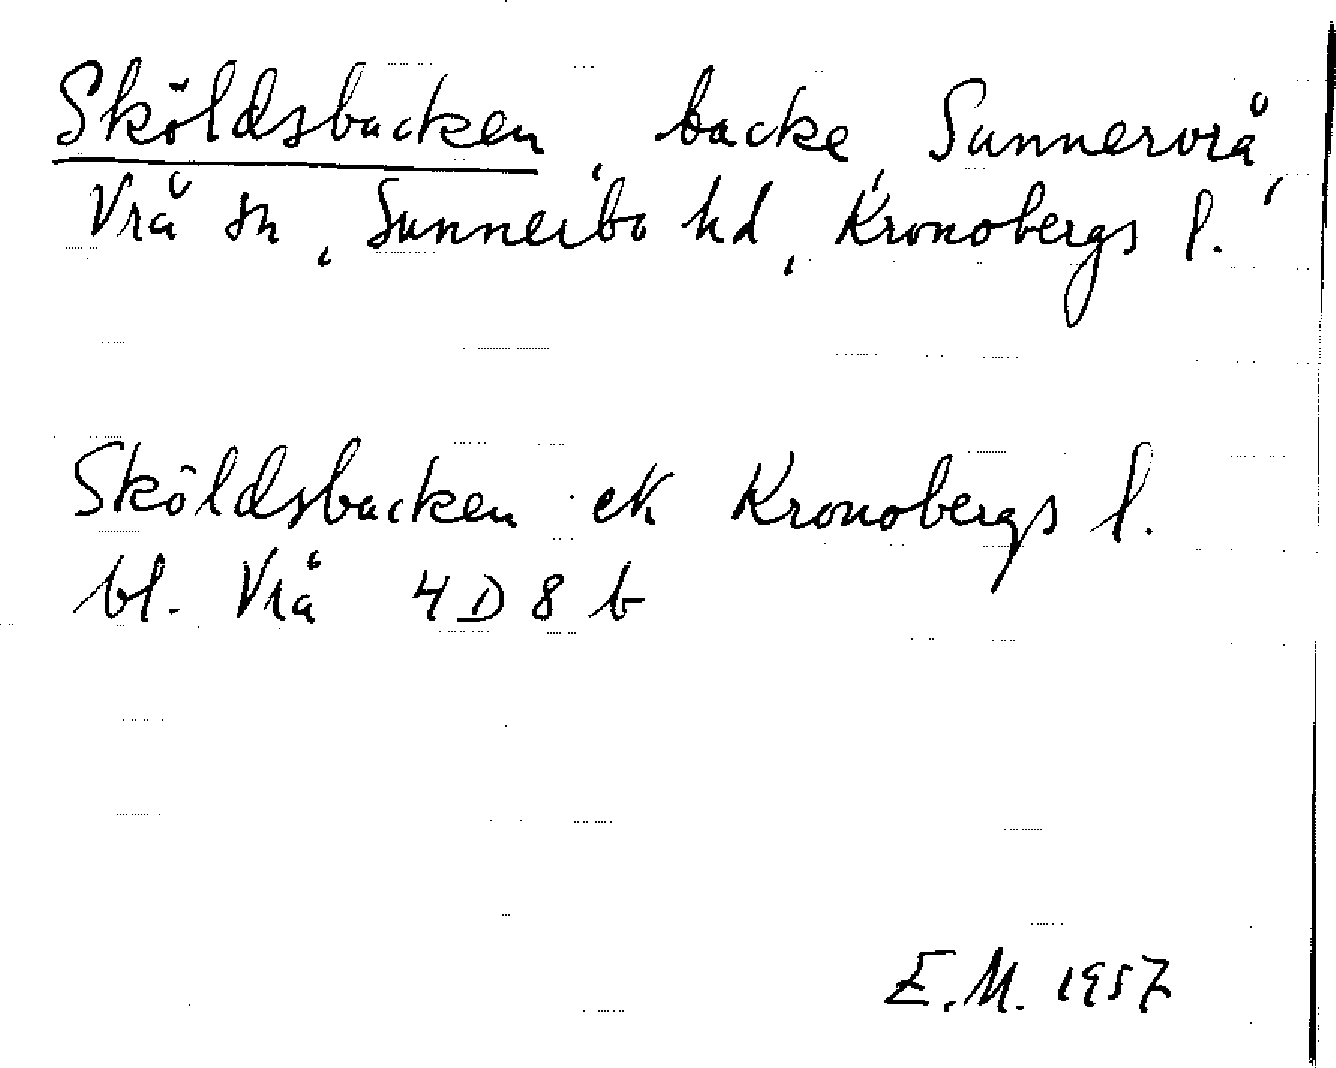 Sköldsbacken, backe, Sunnervrå,
Vrå sn, Sunnerbo hd, Kronobergs l.
Sköldsbacken ek Kronobergs l.
bl. Vrå 4 D 8 b
E.M. 1957